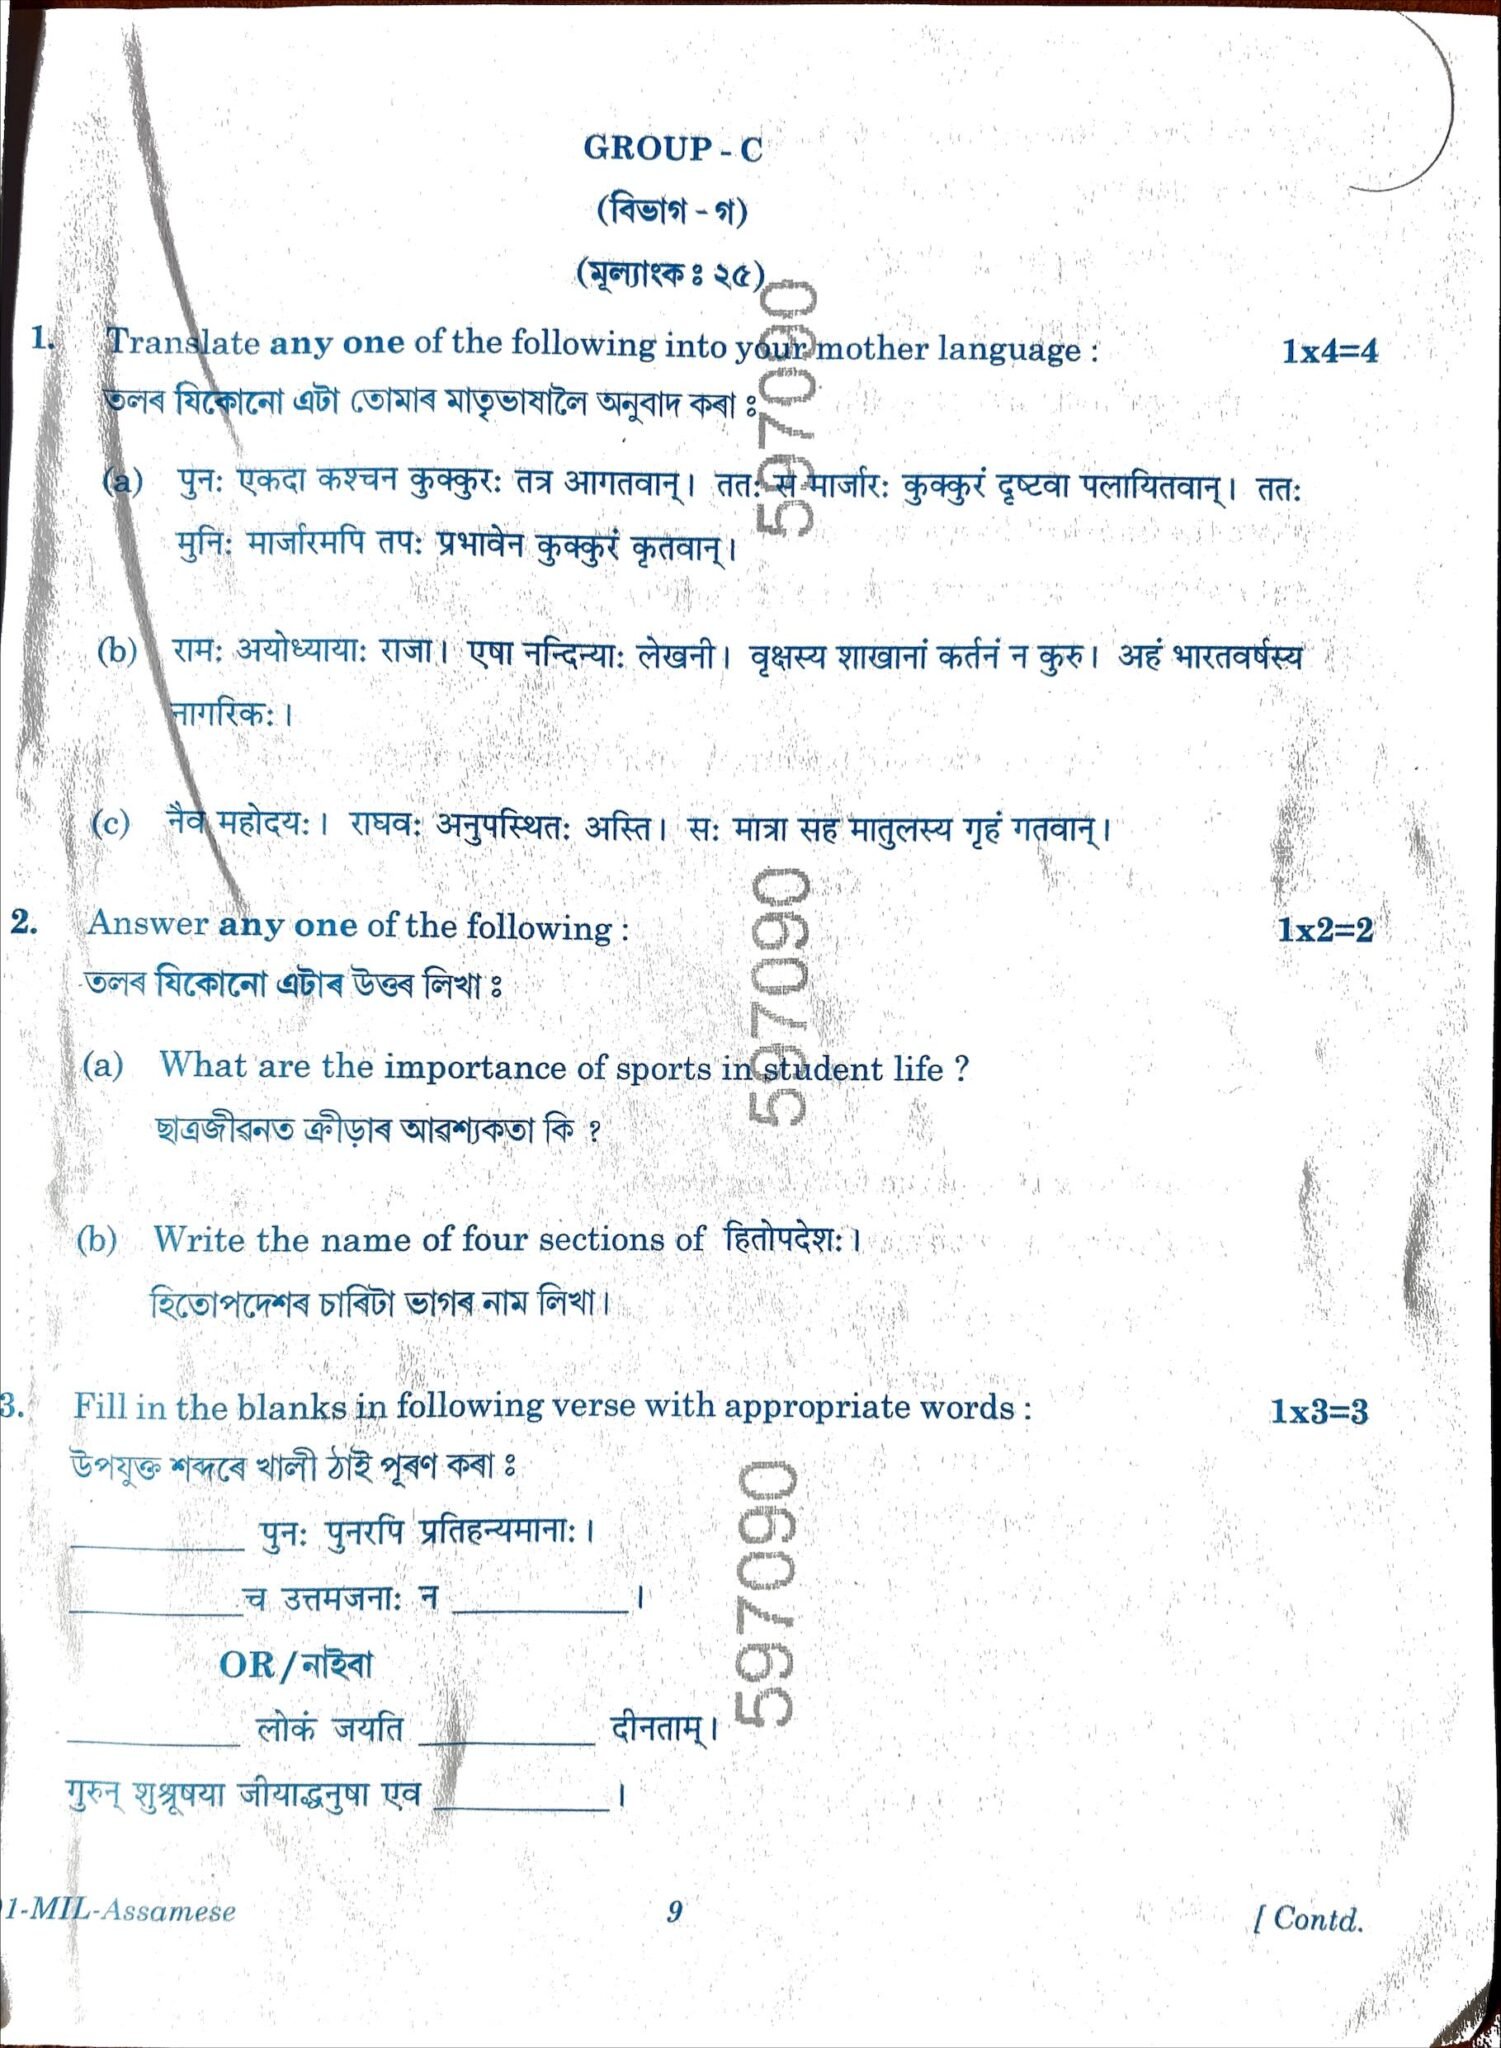 GROUP - C
(বিভাগ - গ)
(মূল্যাংক ঃ ২৫)
1. Translate any one of the following into your mother language : 1x4=4
তলৰ যিকোনো এটা তোমাৰ মাতৃভাষালৈ অনুবাদ কৰা ঃ
(a) पुनः एकदा कश्चन कुक्कुरः तत्र आगतवान्। ततः स मार्जारः कुक्कुरं दृष्टवा पलायितवान्। ततः
मुनिः मार्जारमपि तपः प्रभावेन कुक्कुरं कृतवान्।
(b) रामः अयोध्यायाः राजा। एषा नन्दिन्याः लेखनी। वृक्षस्य शाखानां कर्तनं न कुरु। अहं भारतवर्षस्य
नागरिकः।
(c) नैव महोदयः। राघवः अनुपस्थितः अस्ति। सः मात्रा सह मातुलस्य गृहं गतवान्।
2. Answer any one of the following : 1x2=2
তলৰ যিকোনো এটাৰ উত্তৰ লিখা ঃ
(a) What are the importance of sports in student life ?
ছাত্ৰজীৱনত ক্ৰীড়াৰ আৱশ্যকতা কি ?
(b) Write the name of four sections of हितोपदेशः।
হিতোপদেশৰ চাৰিটা ভাগৰ নাম লিখা।
3. Fill in the blanks in following verse with appropriate words : 1x3=3
উপযুক্ত শব্দৰে খালী ঠাই পূৰণ কৰা ঃ
__________ पुनः पुनरपि प्रतिहन्यमानाः।
__________ च उत्तमजनाः न __________ ।
OR / নাইবা
__________ लोकं जयति __________ दीनताम्।
गुरुन् शुश्रूषया जीयाद्धनुषा एव __________ ।
1-MIL-Assamese 9 [ Contd.
597090
597090
597090